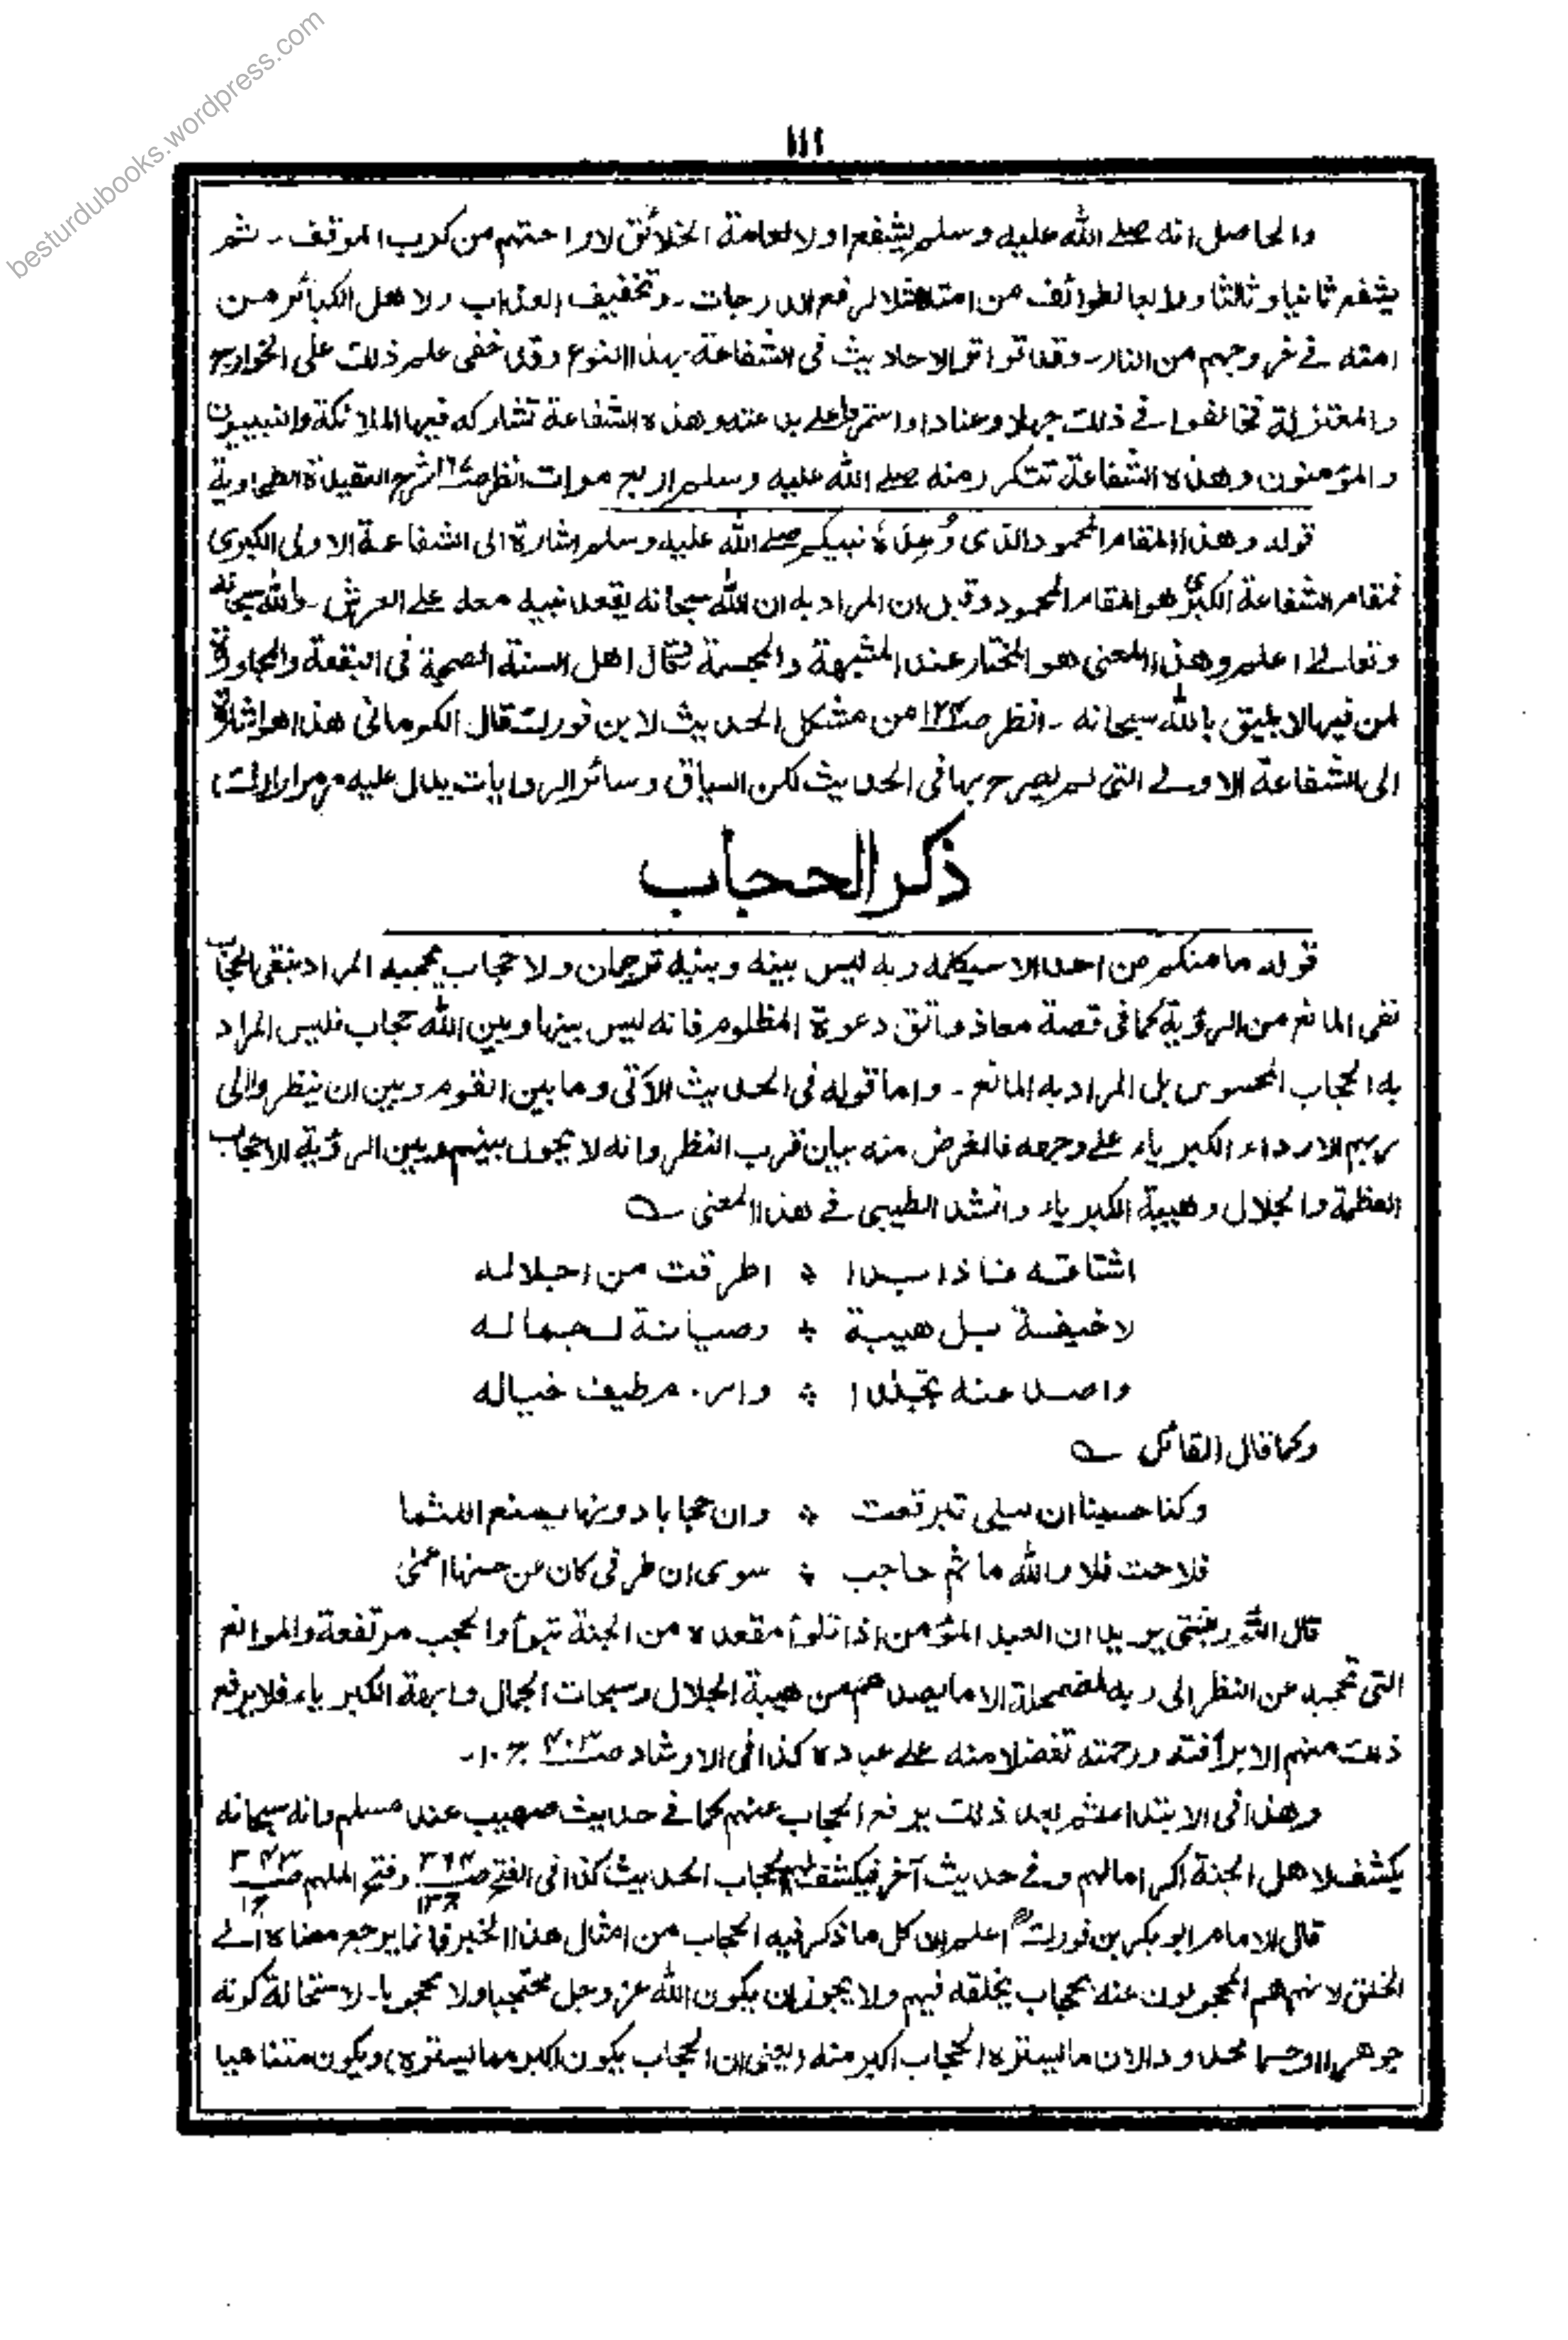 besturdubooks.wordpress.com
والحاصل انه صلے الله عليه وسلم يشفع اولا لعامة الخلائق لاراحتهم من كرب الموقف ـ ثم
يشفع ثانيا وثالثا ورابعا لطوائف من امته مثلا لرفع الدرجات ـ وتخفيف العذاب ولاهل الكبائر من
امته فے خروجهم من النار ـ وقد تواترت الاحاديث فى الشفاعة بهذا النوع وقد خفى علم ذلك على الخوارج
والمعتزلة فخالفوا فے ذلك جهلا وعنادا واستمروا علے بدعته وهذه الشفاعة تشاركه فيها الملائكة والنبييون
والمؤمنون وهذه الشفاعة تتكرر منه صلے الله عليه وسلم اربع مرات انظر شرح العقيدة الطحاوية
قوله وهذا المقام المحمود الذى وُعِدَهٗ نبيكم صلے الله عليه وسلم اشارة الى الشفاعة الاولى الكبرى
فمقام الشفاعة الكبرى هو المقام المحمود وقيل ان المراد به ان الله سبحانه يقعد نبيه معه علے العرش ـ والله سبحانه
وتعالے اعلم وهذا المعنى هو المختار عند المشبهة والمجسمة فقال اهل السنة الصحبة فى البقعة والمجاورة
لمن فيها لا يليق بالله سبحانه ـ انظر من مشكل الحديث لابن فورك قال الكرمانى هذا هو اشارة
الى الشفاعة الاولے التى لم يصرح بها فى الحديث لكن السياق وسائر الروايات يدل عليه
ذكر الحجاب
قوله ما منكم من احد الا سيكلمه ربه ليس بينه وبينه ترجمان ولا حجاب يحجبه المراد بنفى الحجاب
نفى المانع من الرؤية كما فى قصة معاذ واتق دعوة المظلوم فانه ليس بينها وبين الله حجاب فليس المراد
به الحجاب المحسوس بل المراد به المانع ـ واما قوله فى الحديث الآتى وما بين القوم وبين ان ينظروا الى
ربهم الا رداء الكبرياء علے وجهه فالغرض منه بيان قرب النظر وانه لا يحول بينهم وبين الرؤية الا حجاب
العظمة والجلال وهيبة الكبرياء وانشد الطيبى فے هذا المعنى ؎
اشتاقه فاذا بدا ؞ اطرقت من اجلاله
لا خيفة بل هيبة ؞ وصيانة لجماله
واصد عنه تجلدا ؞ واروم طيف خياله
وكما قال القائل ؎
وكنا حسبنا ان ليلى تبرقعت ؞ وان حجابا دونها يمنع اللثما
فلاحت فلا والله ما ثم حاجب ؞ سوى ان طرفى كان عن حسنها اعمىٰ
قال التوربشتى يريد ان العبد المؤمن اذا تبوأ مقعده من الجنة تبوأ والحجب مرتفعة والموانع
التى تحجبه عن النظر الى ربه مضمحلة الا ما يصدهم من هيبة الجلال وسبحات الجمال وابهة الكبرياء فلا يرفع
ذلك منهم الا برأفته ورحمته تفضلا منه علے عباده كذا فى الارشاد صـ ۴۰۳ ج ۱۰ ـ
وهذا فى الابتداء ثم بعد ذلك يرفع الحجاب عنهم كما فے حديث صهيب عند مسلم وانه سبحانه
يكشف لاهل الجنة اكراما لهم وفے حديث آخر فيكشف لهم الحجاب الحديث كذا فى الفتح صـ ۳۶۴ ج ۱۳ وفتح الملهم صـ ۳۴۳ ج ۱
قال الامام ابو بكر بن فورك اعلم ان كل ما ذكر فيه الحجاب من امثال هذا الخبر فانما يرجع معناه الے
الخلق لانهم هم المحجوبون عنه بحجاب يخلقه فيهم ولا يجوز ان يكون الله عز وجل محتجبا ولا محجوبا ـ لاستحالة كونه
جوهرا او جسما محدودا لان ما يستره الحجاب اكبر منه (يعنى ان الحجاب يكون اكبر مما يستره) ويكون متناهيا